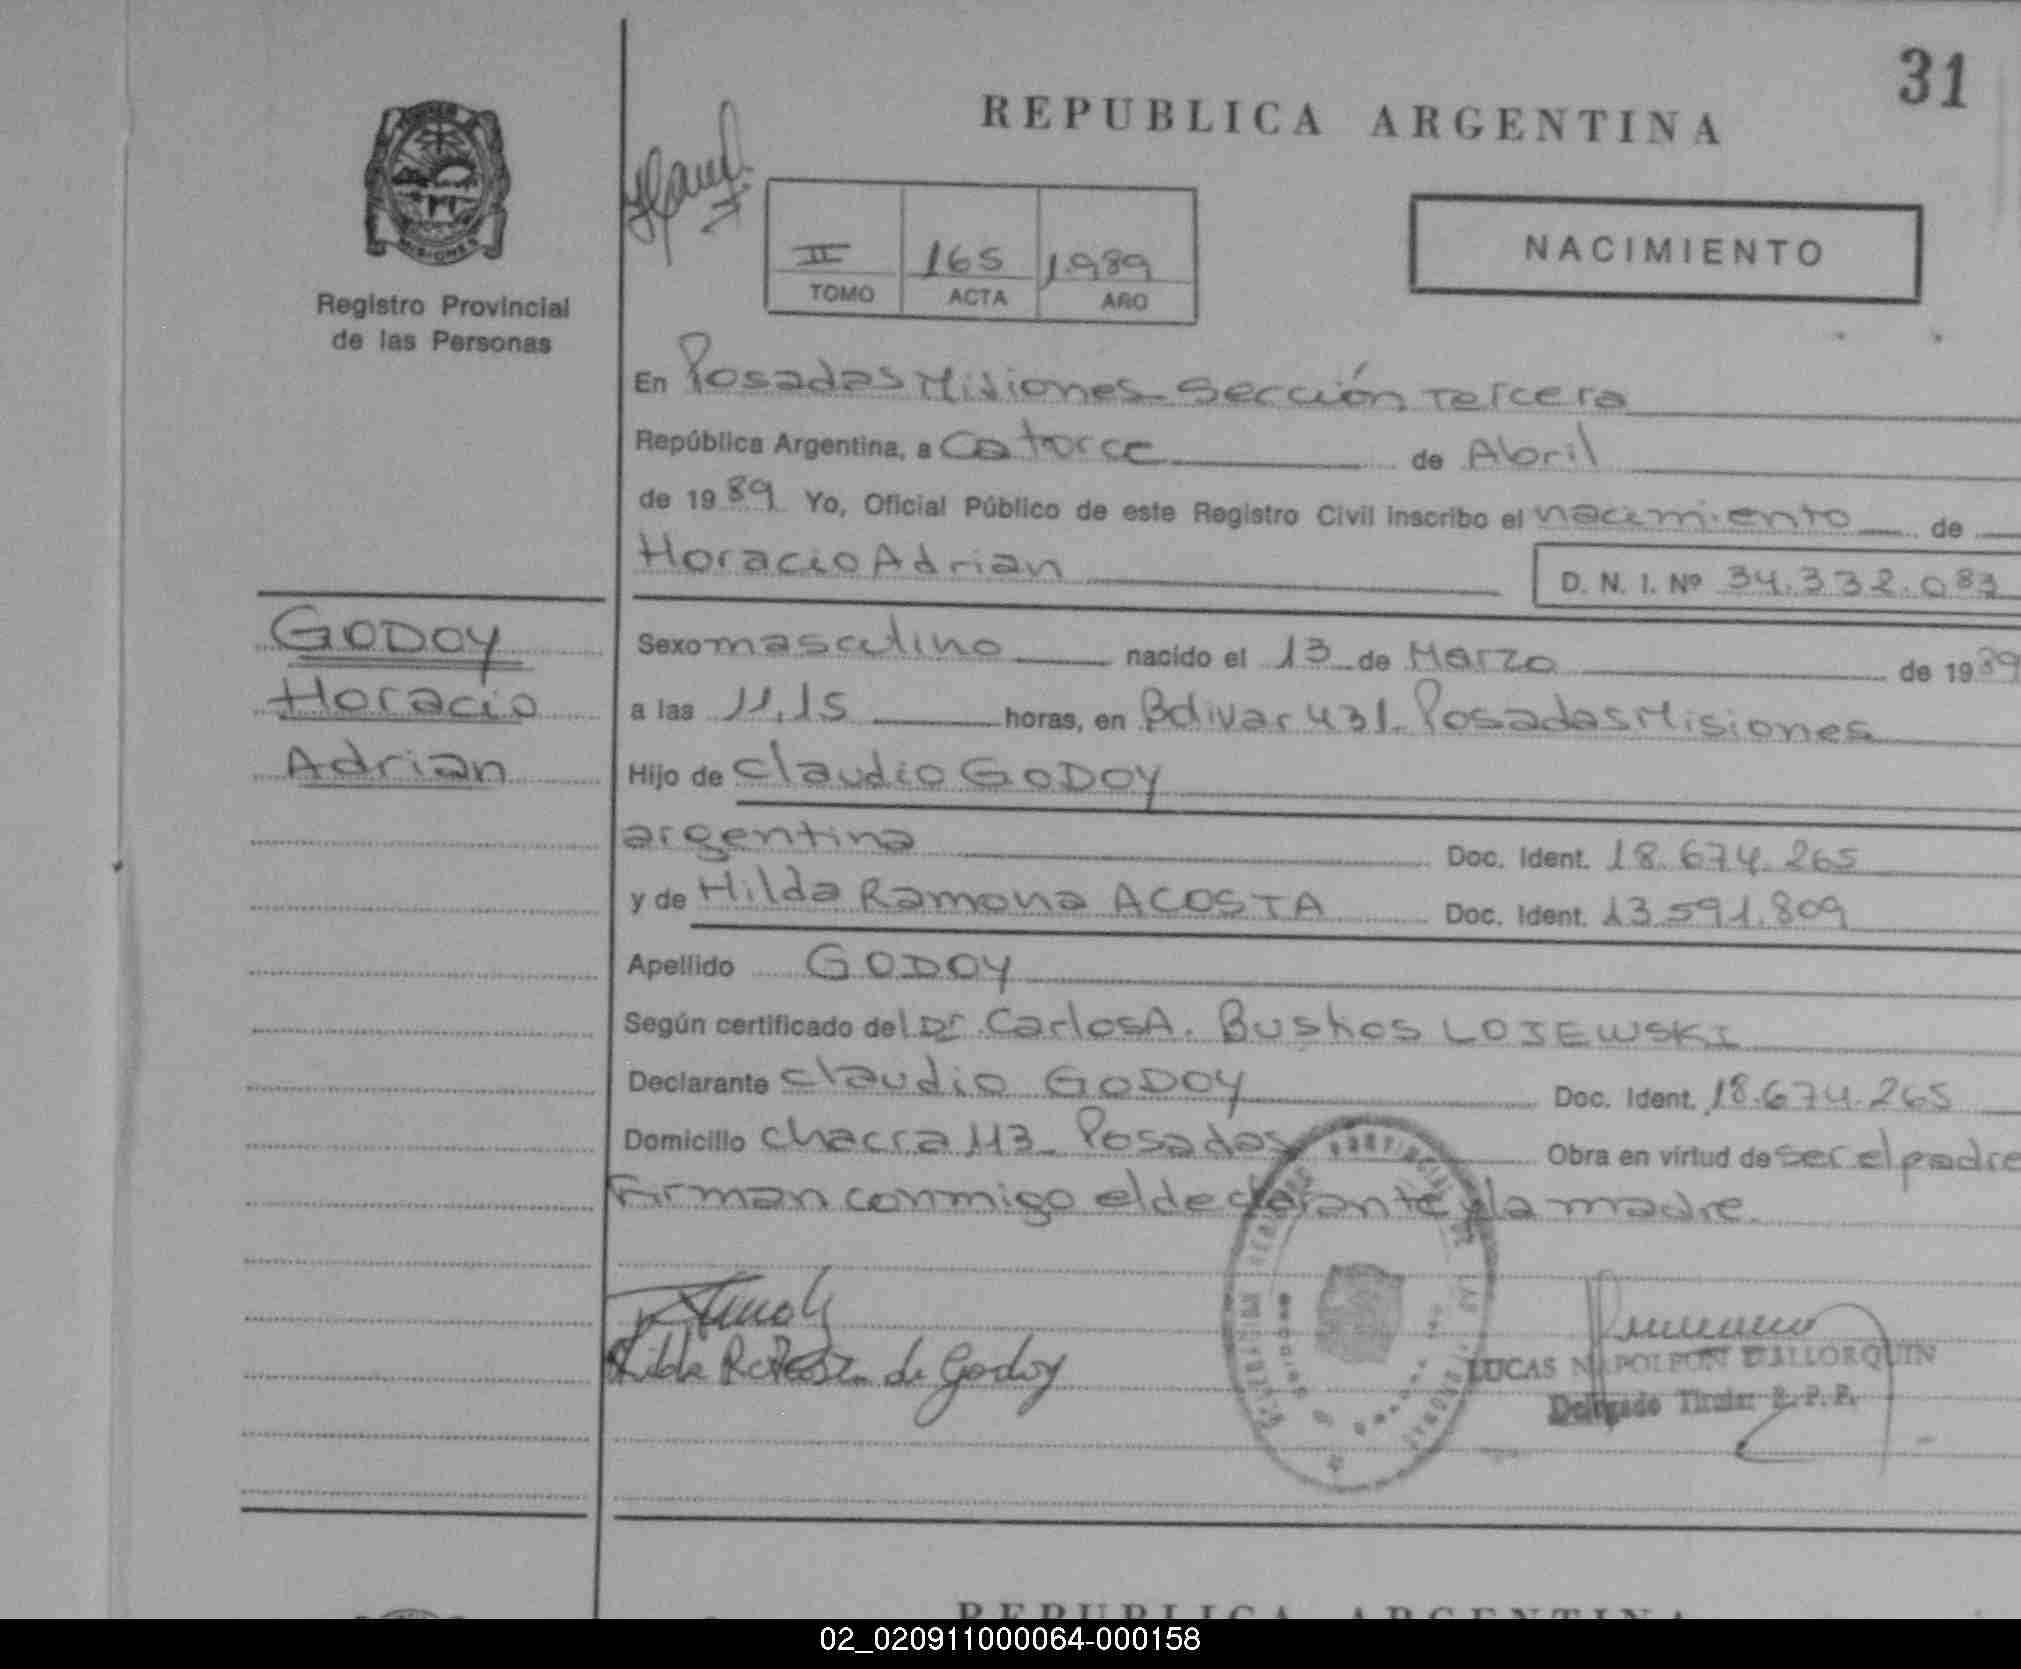 31
REPUBLICA ARGENTINA
MISIONES
Registro Provincial
de las Personas
II 165 1989
TOMO ACTA AÑO
NACIMIENTO
En Posadas Misiones Sección Tercera
República Argentina, a Catorce de Abril
de 1989 Yo, Oficial Público de este Registro Civil inscribo el nacimiento de
Horacio Adrian D. N. I. Nº 34.332.083
GODOY
Horacio
Adrian
Sexo masculino nacido el 13 de Marzo de 1989
a las 11,15 horas, en Bolivar 431. Posadas Misiones
Hijo de Claudio GODOY
argentina Doc. Ident. 18.674.265
y de Hilda Ramona ACOSTA Doc. Ident. 13.591.809
Apellido GODOY
Según certificado del Dr. Carlos A. Bustos LOJEWSKI
Declarante Claudio GODOY Doc. Ident. 18.674.265
Domicilio chacra 113 - Posadas Obra en virtud de ser el padre
Firman conmigo el declarante y la madre.
Hilda R de Godoy
LUCAS NAPOLEON DALLORQUIN
Delegado Titular R. P. P.
REPUBLICA ARGENTINA
02_020911000064-000158